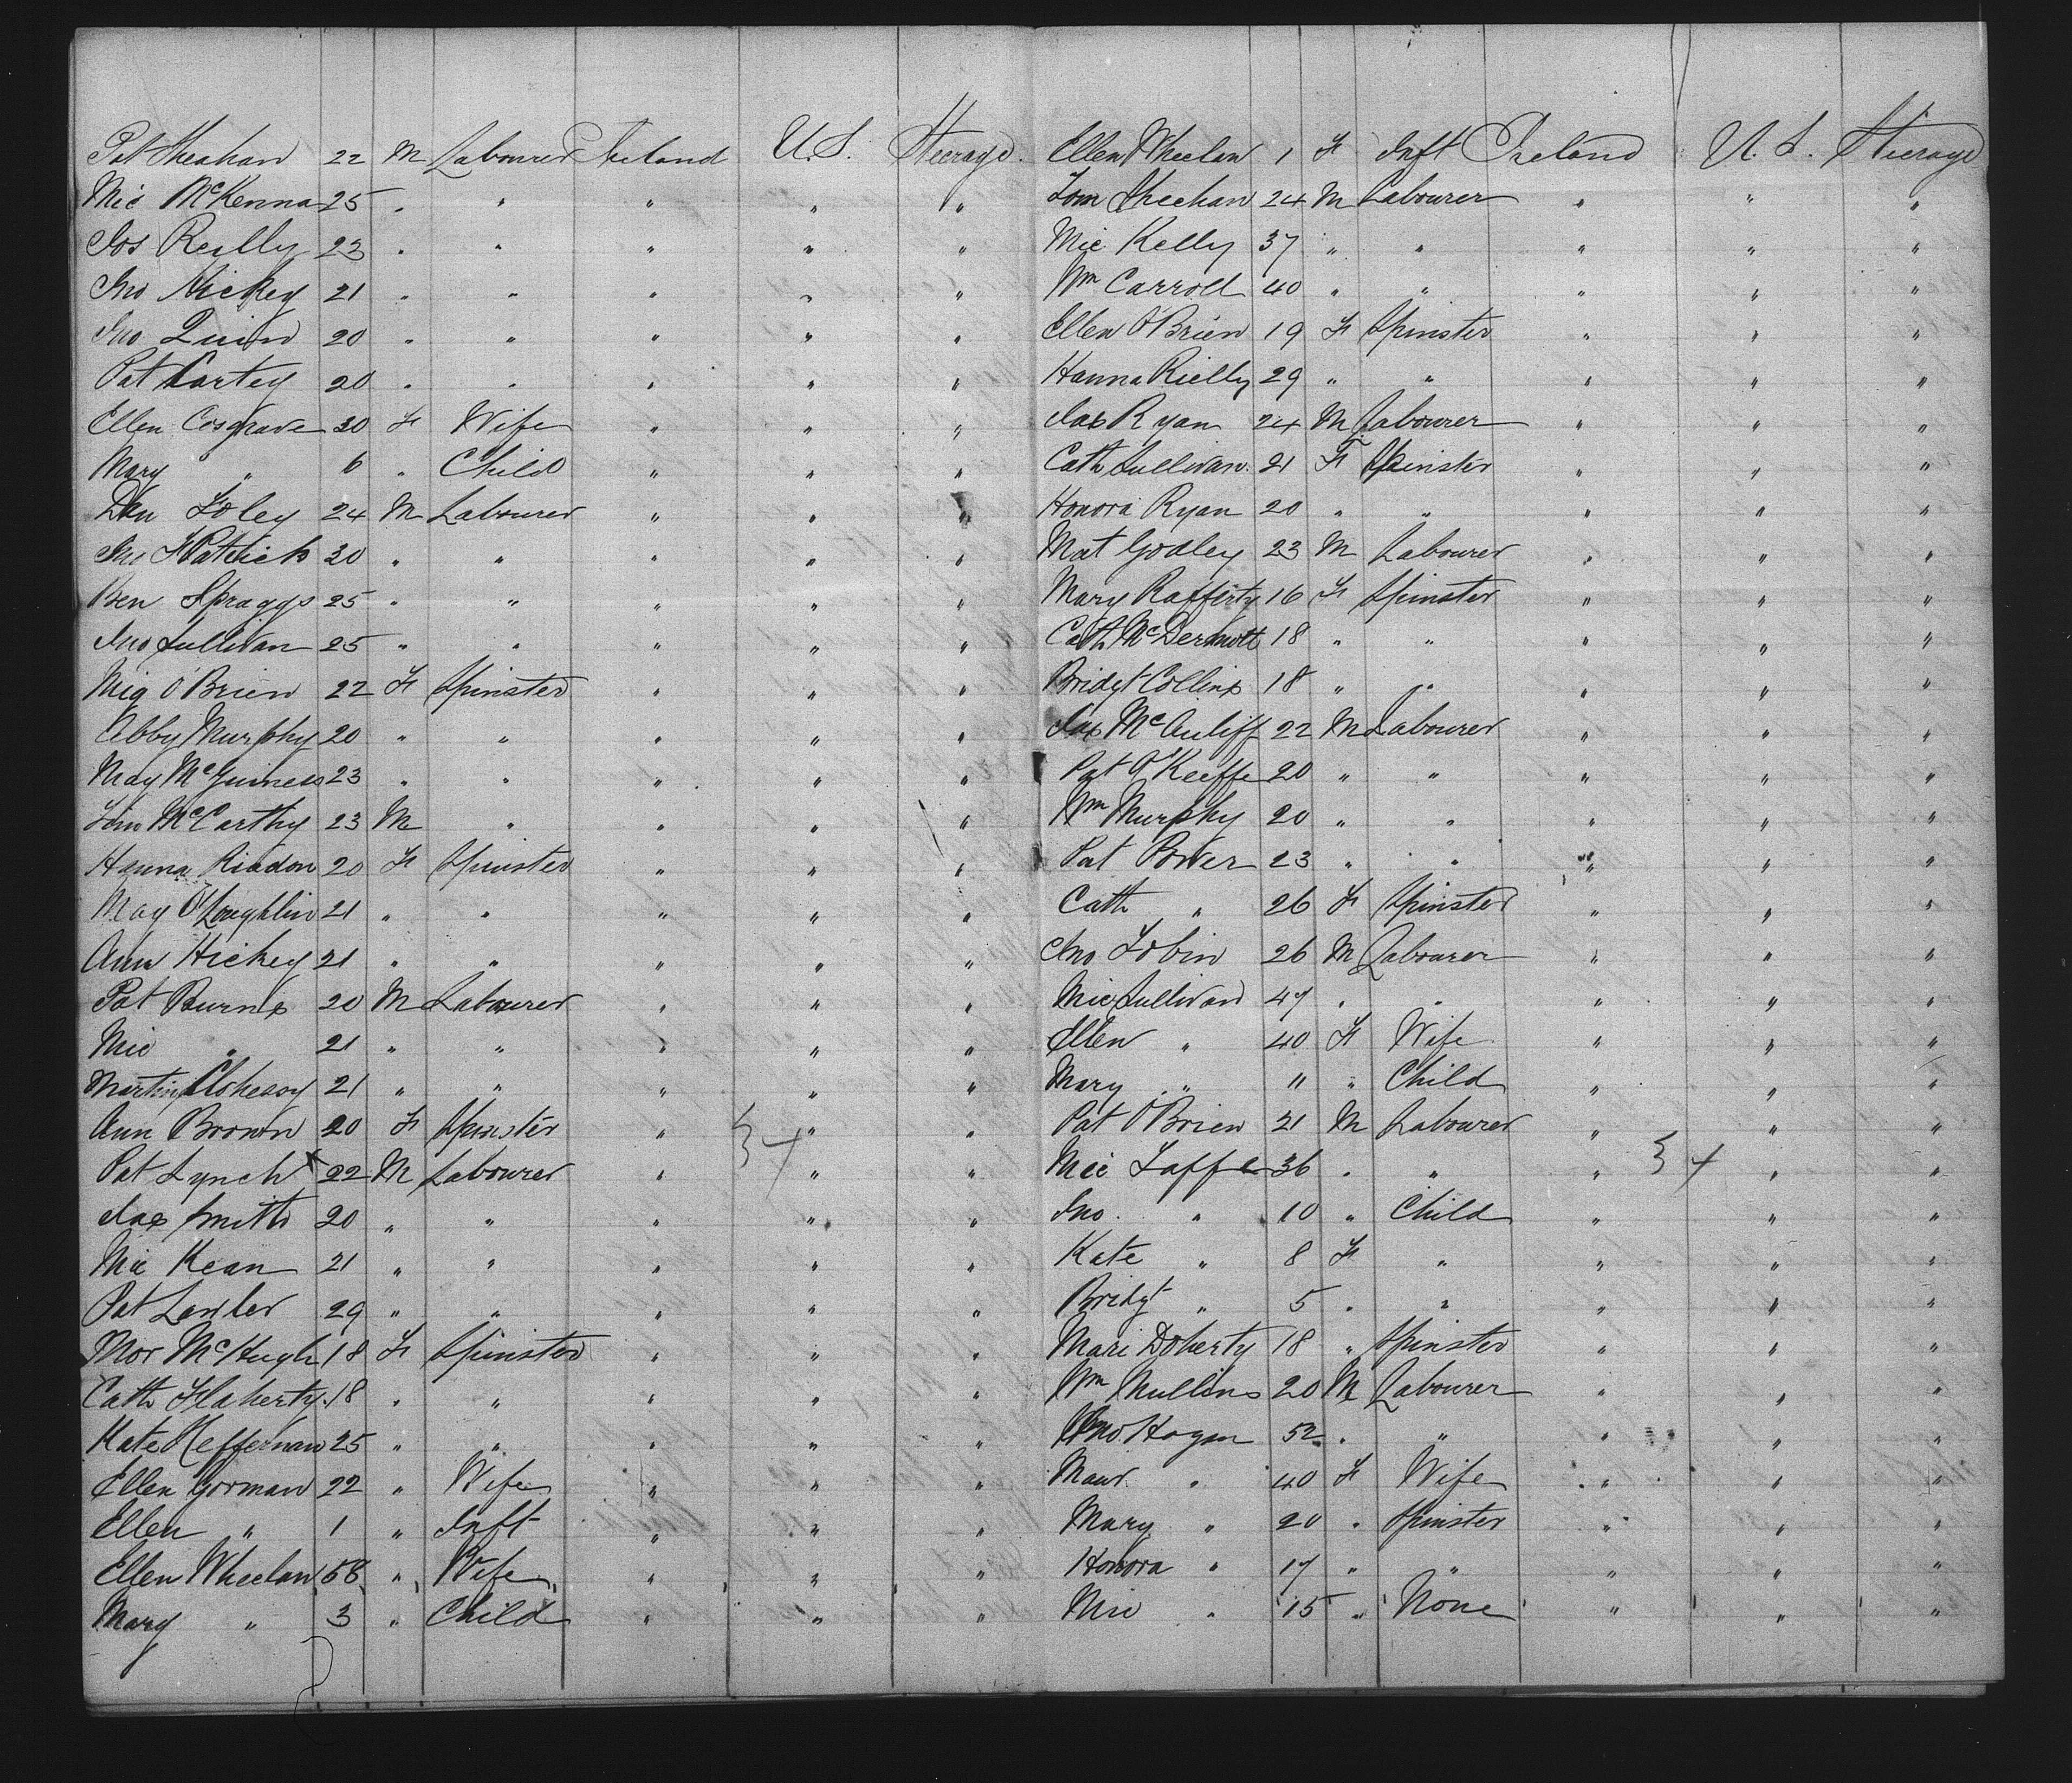 Pat Sheahan 22 M Labourer Ireland U.S. Steerage
Mic McKenna 25 " " " " "
Jos Reilly 23 " " " " "
Jno Hickey 21 " " " " "
Jno Quin 20 " " " " "
Pat Cartey 20 " " " " "
Ellen Cosgrave 30 F Wife " " "
Mary " 6 " Child " " "
Dan Foley 24 M Labourer " " "
Jno FPatrick 30 " " " " "
Ben Spraggs 25 " " " " "
Jno Sullivan 25 " " " " "
Mig O'Brien 22 F Spinster " " "
Abby Murphy 20 " " " " "
May McGuiness 23 " " " " "
Tim McCarthy 23 M " " " "
Hanna Riadon 20 F Spinster " " "
May O'Loughlin 21 " " " " "
Ann Hickey 21 " " " " "
Pat Burns 20 M Labourer " " "
Mic " 21 " " " " "
Martin Clohessy 21 " " " " "
Ann Brown 20 F Spinster " " "
Pat Lynch 22 M Labourer " " "
Jas Smith 20 " " " " "
Mic Kean 21 " " " " "
Pat Lawler 29 " " " " "
Mor McHugh 18 F Spinster " " "
Cath Flaherty 18 " " " " "
Kate Heffernan 25 " " " " "
Ellen Gorman 22 " Wife " " "
Ellen " 1 " Inft " " "
Ellen Wheelan 58 " Wife " " "
Mary " 3 " Child " " "
Ellen Wheelan 1 F Inft Ireland U.S. Steerage
Tom Sheehan 24 M Labourer " " "
Mic Kelly 37 " " " " "
Wm Carroll 40 " " " " "
Ellen O'Brien 19 F Spinster " " "
Hanna Rielly 29 " " " " "
Jas Ryan 24 M Labourer " " "
Cath Sullivan 21 F Spinster " " "
Honora Ryan 20 " " " " "
Mat Godley 23 M Labourer " " "
Mary Rafferty 16 F Spinster " " "
Cath McDermott 18 " " " " "
Bridgt Collins 18 " " " " "
Jas McAuliff 22 M Labourer " " "
Pat O'Keeffe 20 " " " " "
Wm Murphy 20 " " " " "
Pat Power 23 " " " " "
Cath " 26 F Spinster " " "
Jno Tobin 26 M Labourer " " "
Mic Sullivan 47 " " " " "
Ellen " 40 F Wife " " "
Mary " 11 " Child " " "
Pat O'Brien 21 M Labourer " " "
Mic Taffe 36 " " " " "
Jno " 10 " Child " " "
Kate " 8 F " " " "
Bridgt " 5 " " " " "
Mari Doherty 18 " Spinster " " "
Wm Mullins 20 M Labourer " " "
Jno Hogan 52 " " " " "
Maur " 40 F Wife " " "
Mary " 20 " Spinster " " "
Honora " 17 " " " " "
Mic " 15 " None " " "